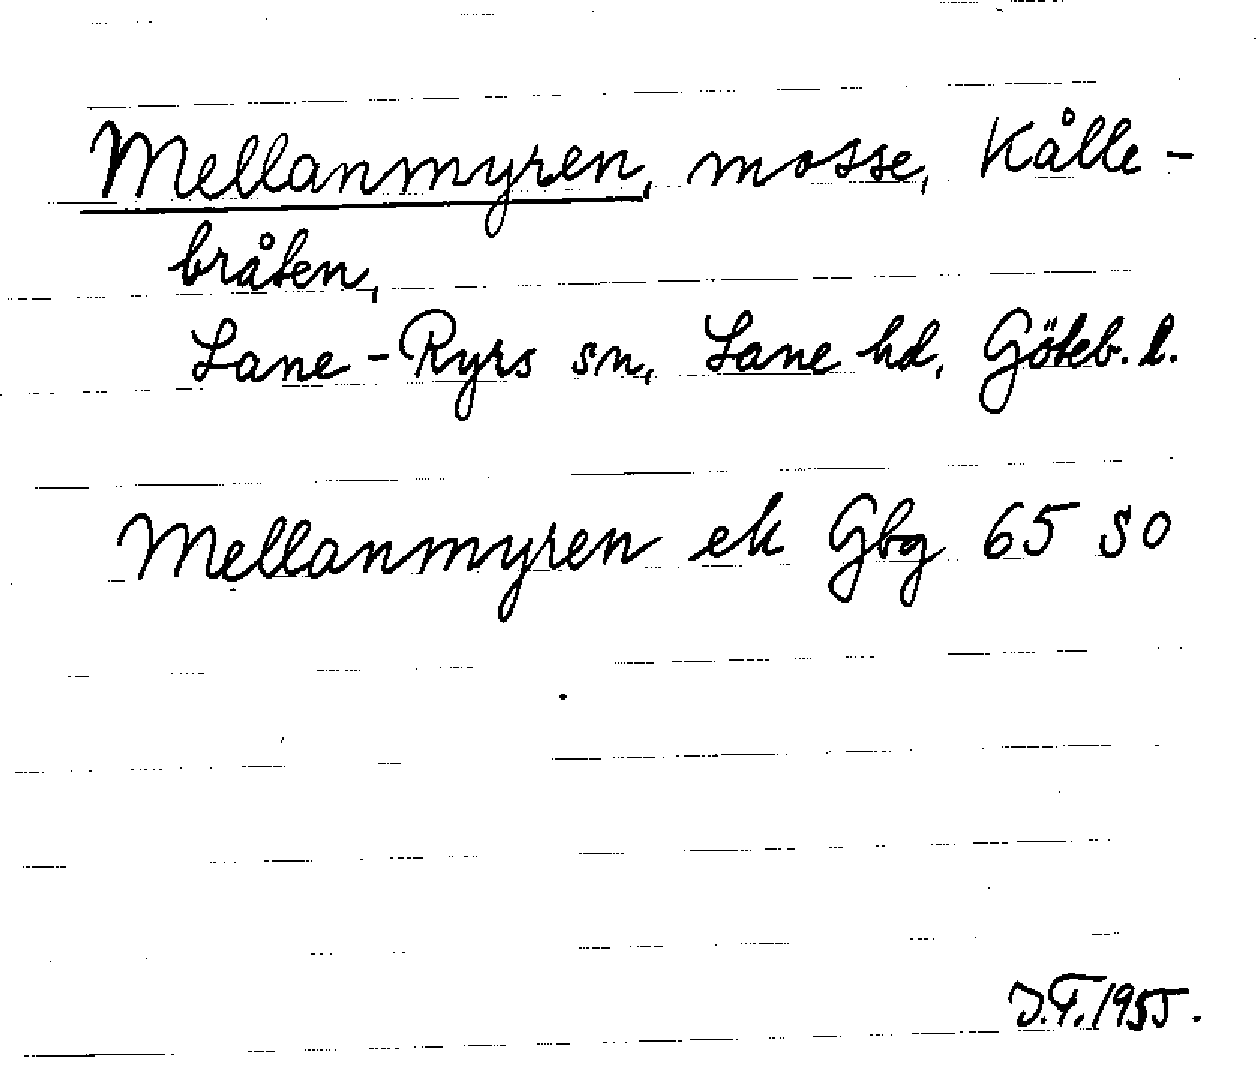 Mellanmyren, mosse, Kålle-
bråten,
Lane-Ryrs sn, Lane hd, Göteb. l.
Mellanmyren ek Gbg 65 SO
J.F. 1955.